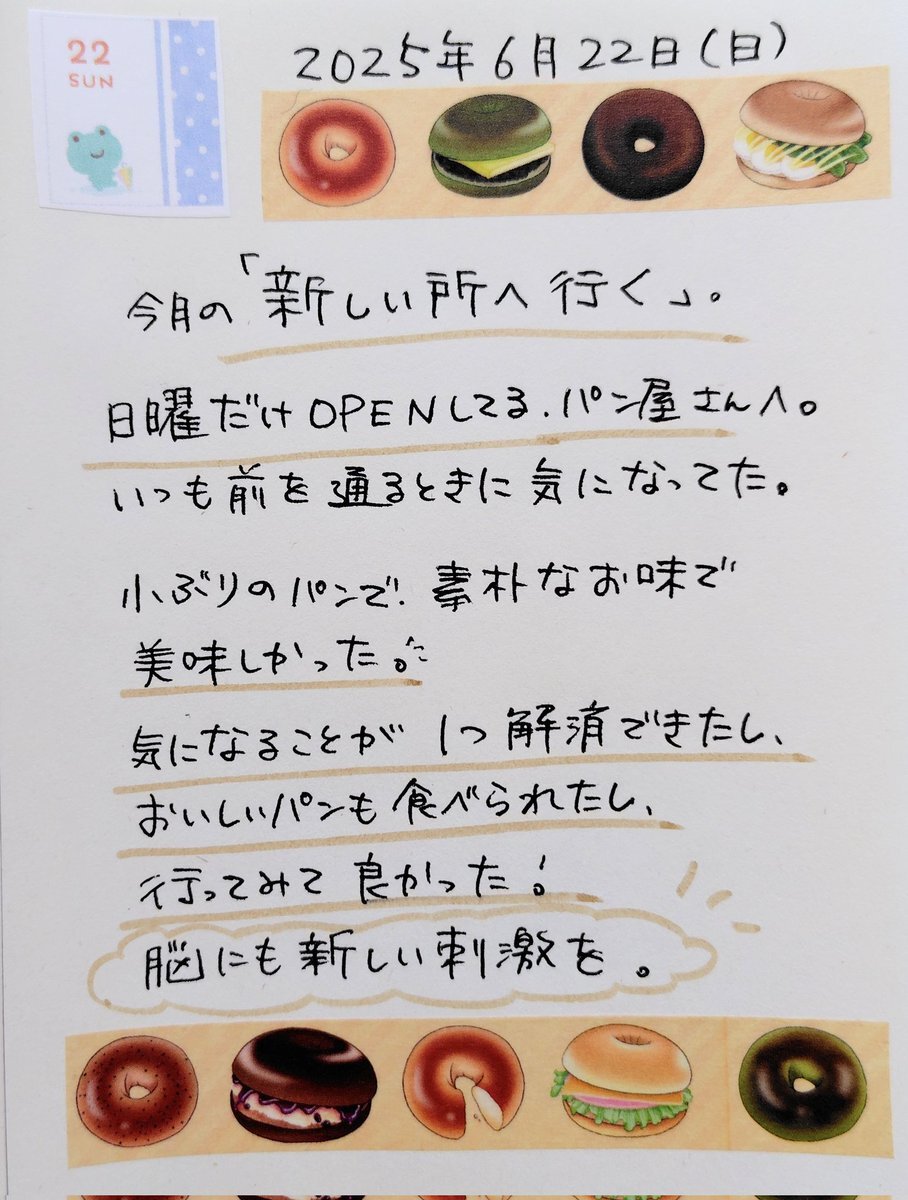 22
SUN
2025年6月22日(日)
今月の「新しい所へ行く」。
日曜だけOPENしてる、パン屋さんへ。
いつも前を通るときに気になってた。
小ぶりのパンで、素朴なお味で
美味しかった。
気になることが1つ解済できたし、
おいしいパンも食べられたし、
行ってみて良かった!
脳にも新しい刺激を。